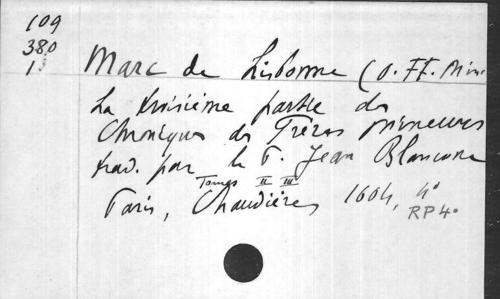 109
380
1
Marc de Lisbonne (O. FF. Min.
La troisième partie des
Chroniques des Frères mineurs
trad. par le P. Jean Blancone
Tomes II III
Paris, Chaudière, 1604, 4°
RP 4°